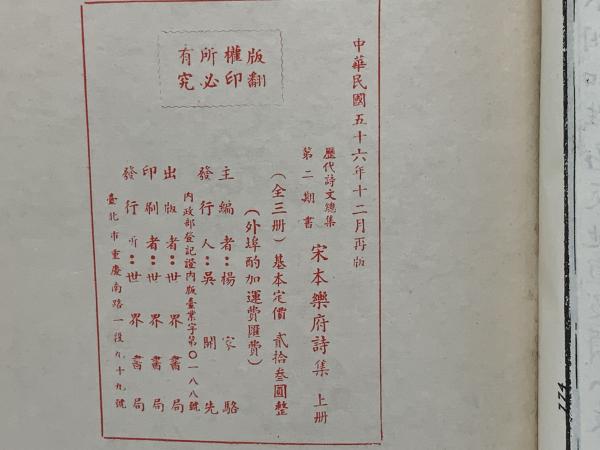 版權所有
翻印必究
中華民國五十六年十二月再版
歷代詩文總集
第二期書
宋本樂府詩集 上册
(全三册)基本定價 貳拾叁圓整
(外埠酌加運費匯費)
主編者:楊家駱
發行人:吳開先
內政部登記證內版臺業字第〇一八八號
出版者:世界書局
印刷者:世界書局
發行所:世界書局
臺北市重慶南路一段九十九號
774